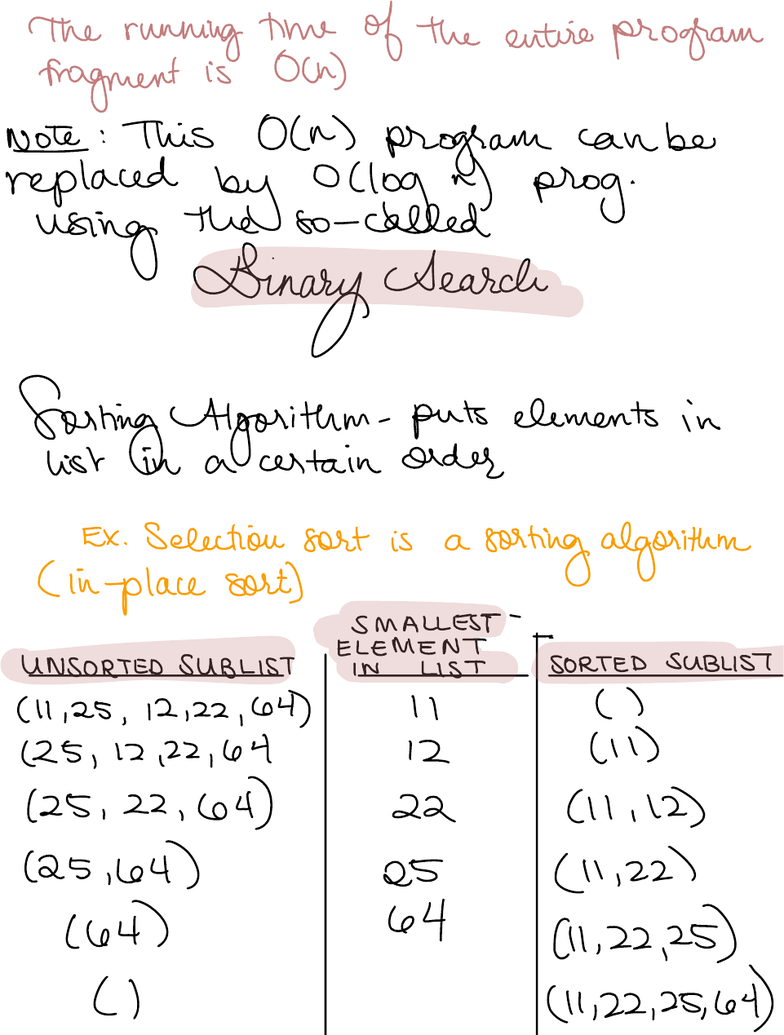 The running time of the entire program
fragment is O(n)
Note: This O(n) program can be
replaced by O(log n) prog.
using the so-called
Binary Search
Sorting Algorithm - puts elements in
list in a certain order
Ex. Selection sort is a sorting algorithm
(in-place sort)
UNSORTED SUBLIST | SMALLEST ELEMENT IN LIST | SORTED SUBLIST
(11,25, 12,22,64) | 11 | ()
(25, 12,22,64 | 12 | (11)
(25, 22, 64) | 22 | (11,12)
(25,64) | 25 | (11,22)
(64) | 64 | (11,22,25)
() | | (11,22,25,64)